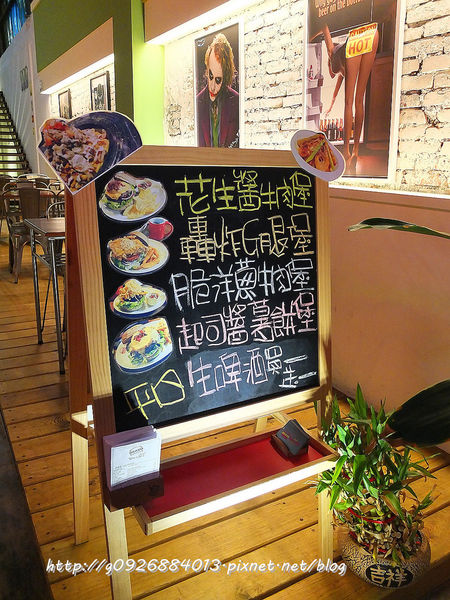 HOT
花生醬牛肉堡
轟炸G腿堡
脆洋蔥牛肉堡
起司醬薯餅堡
平日 生啤酒買一送一
吉祥
http://g0926884013.pixnet.net/blog